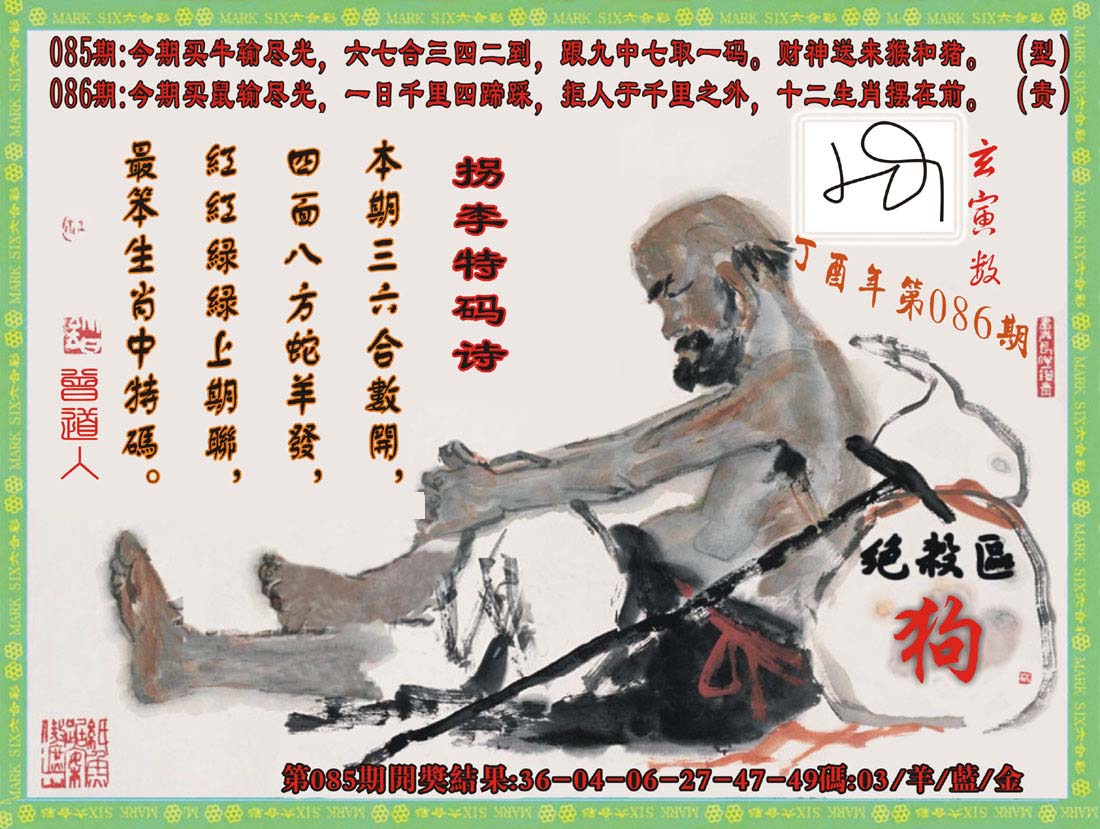 MARK SIX六合彩
085期:今期买牛输尽光，六七合三四二到，跟九中七取一码。财神送来猴和猪。 (型)
086期:今期买鼠输尽光，一日千里四蹄踩，拒人于千里之外，十二生肖摆在前。 (贵)
玄寅数
丁酉年第086期
拐李特码诗
本期三六合數開，
四面八方蛇羊發，
紅紅綠綠上期聯，
最笨生肖中特碼。
曾道人
绝殺區
狗
第085期開獎結果:36-04-06-27-47-49碼:03/羊/藍/金